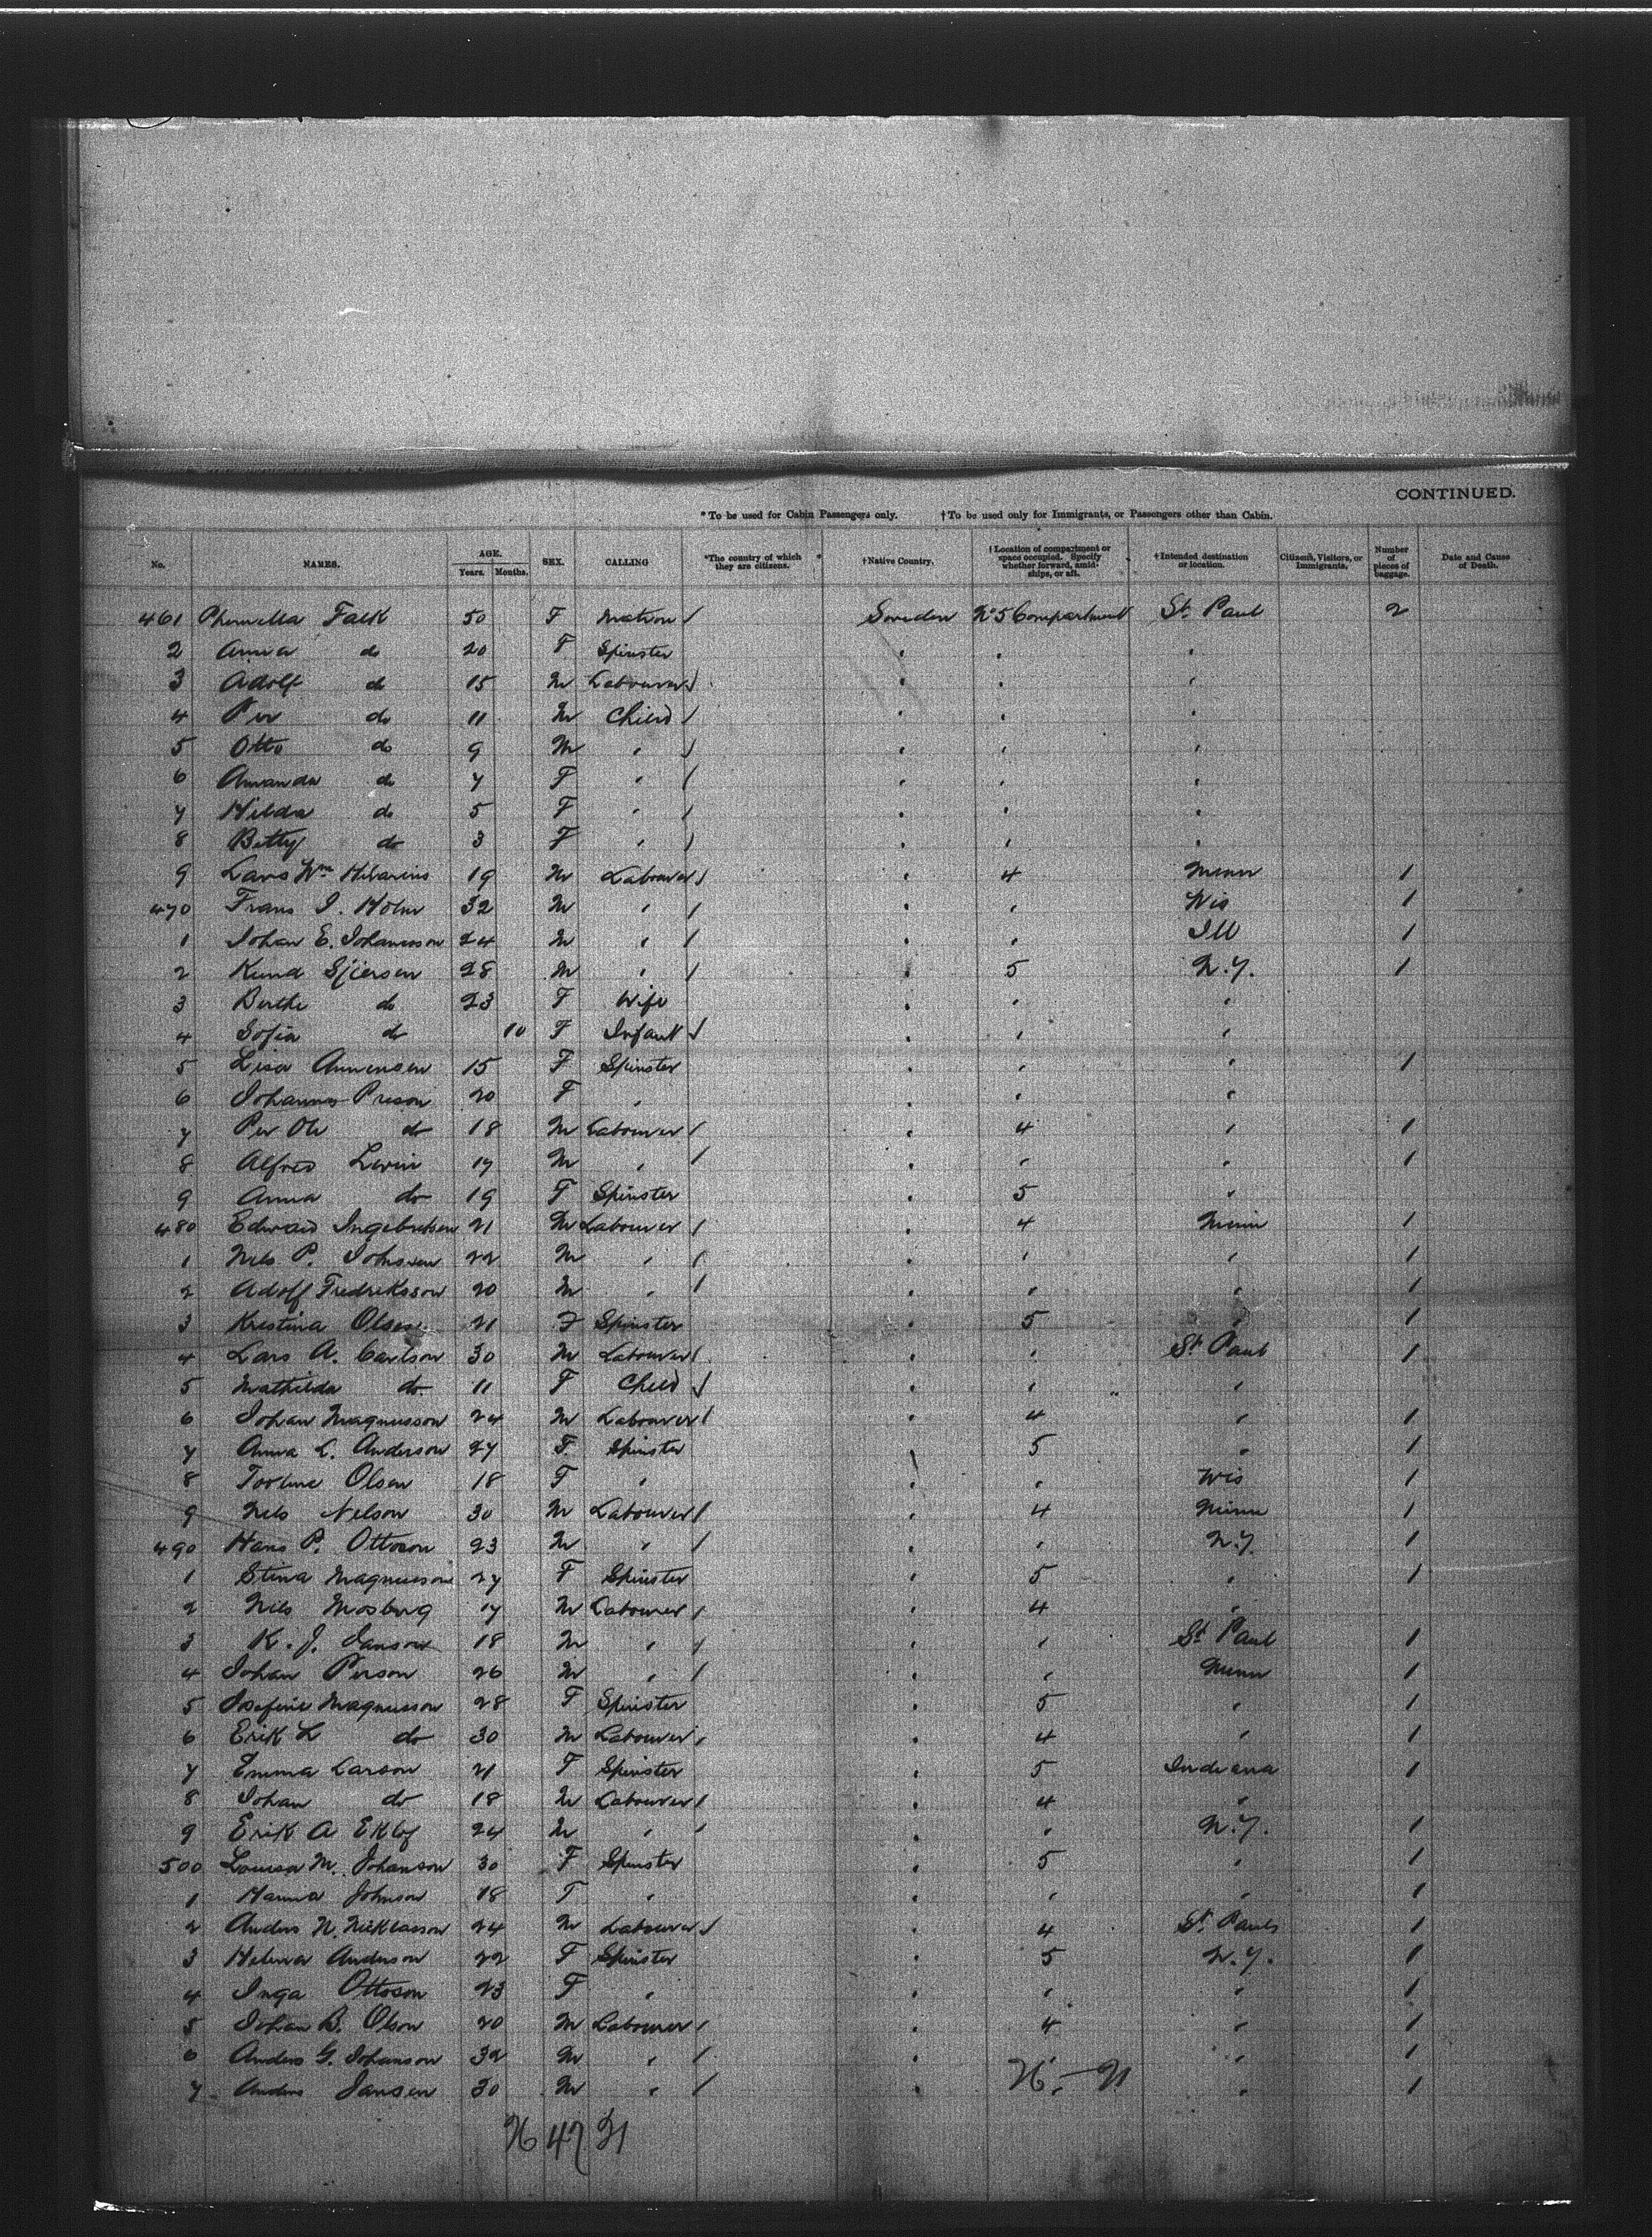 CONTINUED.
* To be used for Cabin Passengers only. † To be used only for Immigrants, or Passengers other than Cabin.
No. NAMES. AGE. Years. Months. SEX. CALLING *The country of which they are citizens. †Native Country. †Location of compartment or space occupied. Specify whether forward, amidships, or aft. †Intended destination or location. Citizens, Visitors, or Immigrants. Number of pieces of baggage. Date and Cause of Death.
461 Falk 50 F Matron / Sweden No 5 Compartment St. Paul 2
2 Anna do 20 F Spinster " " "
3 Adolf do 15 M Labourer / " " "
4 Per do 11 M Child / " " "
5 Otto do 9 M " / " " "
6 Amanda do 7 F " / " " "
7 Hilda do 5 F " / " " "
8 Betty do 3 F " / " " "
9 Lars Wm 19 M Labourer / " 4 Minn 1
470 Frans I. Holm 32 M " / " " Wis 1
1 Johan E. Johansson 24 M " / " " Ill 1
2 Knud 28 M " / " 5 N.Y. 1
3 Berthe do 23 F Wife " " "
4 Sofia do 10 F Infant / " " "
5 Lisa 15 F Spinster " " " 1
6 20 F " " " "
7 Per Ole do 18 M Labourer / " 4 " 1
8 Alfred Levin 17 M " / " " " 1
9 Anna do 19 F Spinster " 5 "
480 Edward Ingebretsen 21 M Labourer / " 4 Minn 1
1 Nels P. Johnson 22 M " / " " " 1
2 Adolf Fredriksson 20 M " / " " " 1
3 Kristina Olsen 21 F Spinster " 5 " 1
4 Lars A. Carlson 30 M Labourer / " " St. Paul 1
5 Mathilda do 11 F Child / " " "
6 Johan Magnusson 24 M Labourer / " 4 " 1
7 Anna L. Anderson 27 F Spinster " 5 " 1
8 Olsen 18 F " " " Wis 1
9 Nels Nelson 30 M Labourer / " 4 Minn 1
490 Hans P. Ottoson 23 M " / " " N.Y. 1
1 Stina Magnusson 27 F Spinster " 5 " 1
2 Nils Mosberg 17 M Labourer / " 4 "
3 K. J. Janson 18 M " / " " St. Paul 1
4 Johan Person 26 M " / " " Minn 1
5 Josefine Magnusson 28 F Spinster " 5 " 1
6 Erik L do 30 M Labourer / " 4 " 1
7 Emma Larson 21 F Spinster " 5 Indiana 1
8 Johan do 18 M Labourer / " 4 "
9 Erik A 24 M " / " " N.Y. 1
500 Louisa M. Johanson 30 F Spinster " 5 " 1
1 Hanna Johnson 18 F " " " " 1
2 Anders N. Nicklasson 24 M Labourer / " 4 St. Pauls 1
3 Helena Anderson 22 F Spinster " 5 N.Y. 1
4 Inga Ottoson 23 F " " " " 1
5 Johan B. Olson 20 M Labourer / " 4 " 1
6 Anders G. Johanson 32 M " / " " " 1
7 Anders Jansen 30 M " / " " " 1
26 – 21
26 47 21